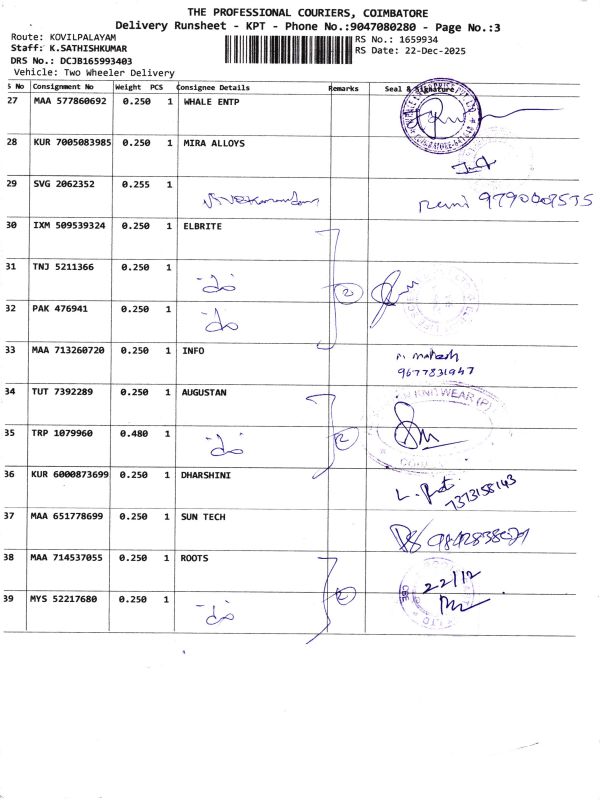 THE PROFESSIONAL COURIERS, COIMBATORE
Delivery Runsheet - KPT - Phone No.:9047080280 - Page No.:3
Route: KOVILPALAYAM
RS No.: 1659934
Staff: K.SATHISHKUMAR
RS Date: 22-Dec-2025
DRS No.: DCJB165993403
Vehicle: Two Wheeler Delivery
S No Consignment No Weight PCS Consignee Details Remarks Seal & Signature
27 MAA 577860692 0.250 1 WHALE ENTP
28 KUR 7005083985 0.250 1 MIRA ALLOYS
29 SVG 2062352 0.255 1
30 IXM 509539324 0.250 1 ELBRITE
31 TNJ 5211366 0.250 1 2
32 PAK 476941 0.250 1
33 MAA 713260720 0.250 1 INFO
9677831947
34 TUT 7392289 0.250 1 AUGUSTAN
35 TRP 1079960 0.480 1 2
36 KUR 6000873699 0.250 1 DHARSHINI
7373158143
37 MAA 651778699 0.250 1 SUN TECH
38 MAA 714537055 0.250 1 ROOTS 22/12
39 MYS 52217680 0.250 1 2